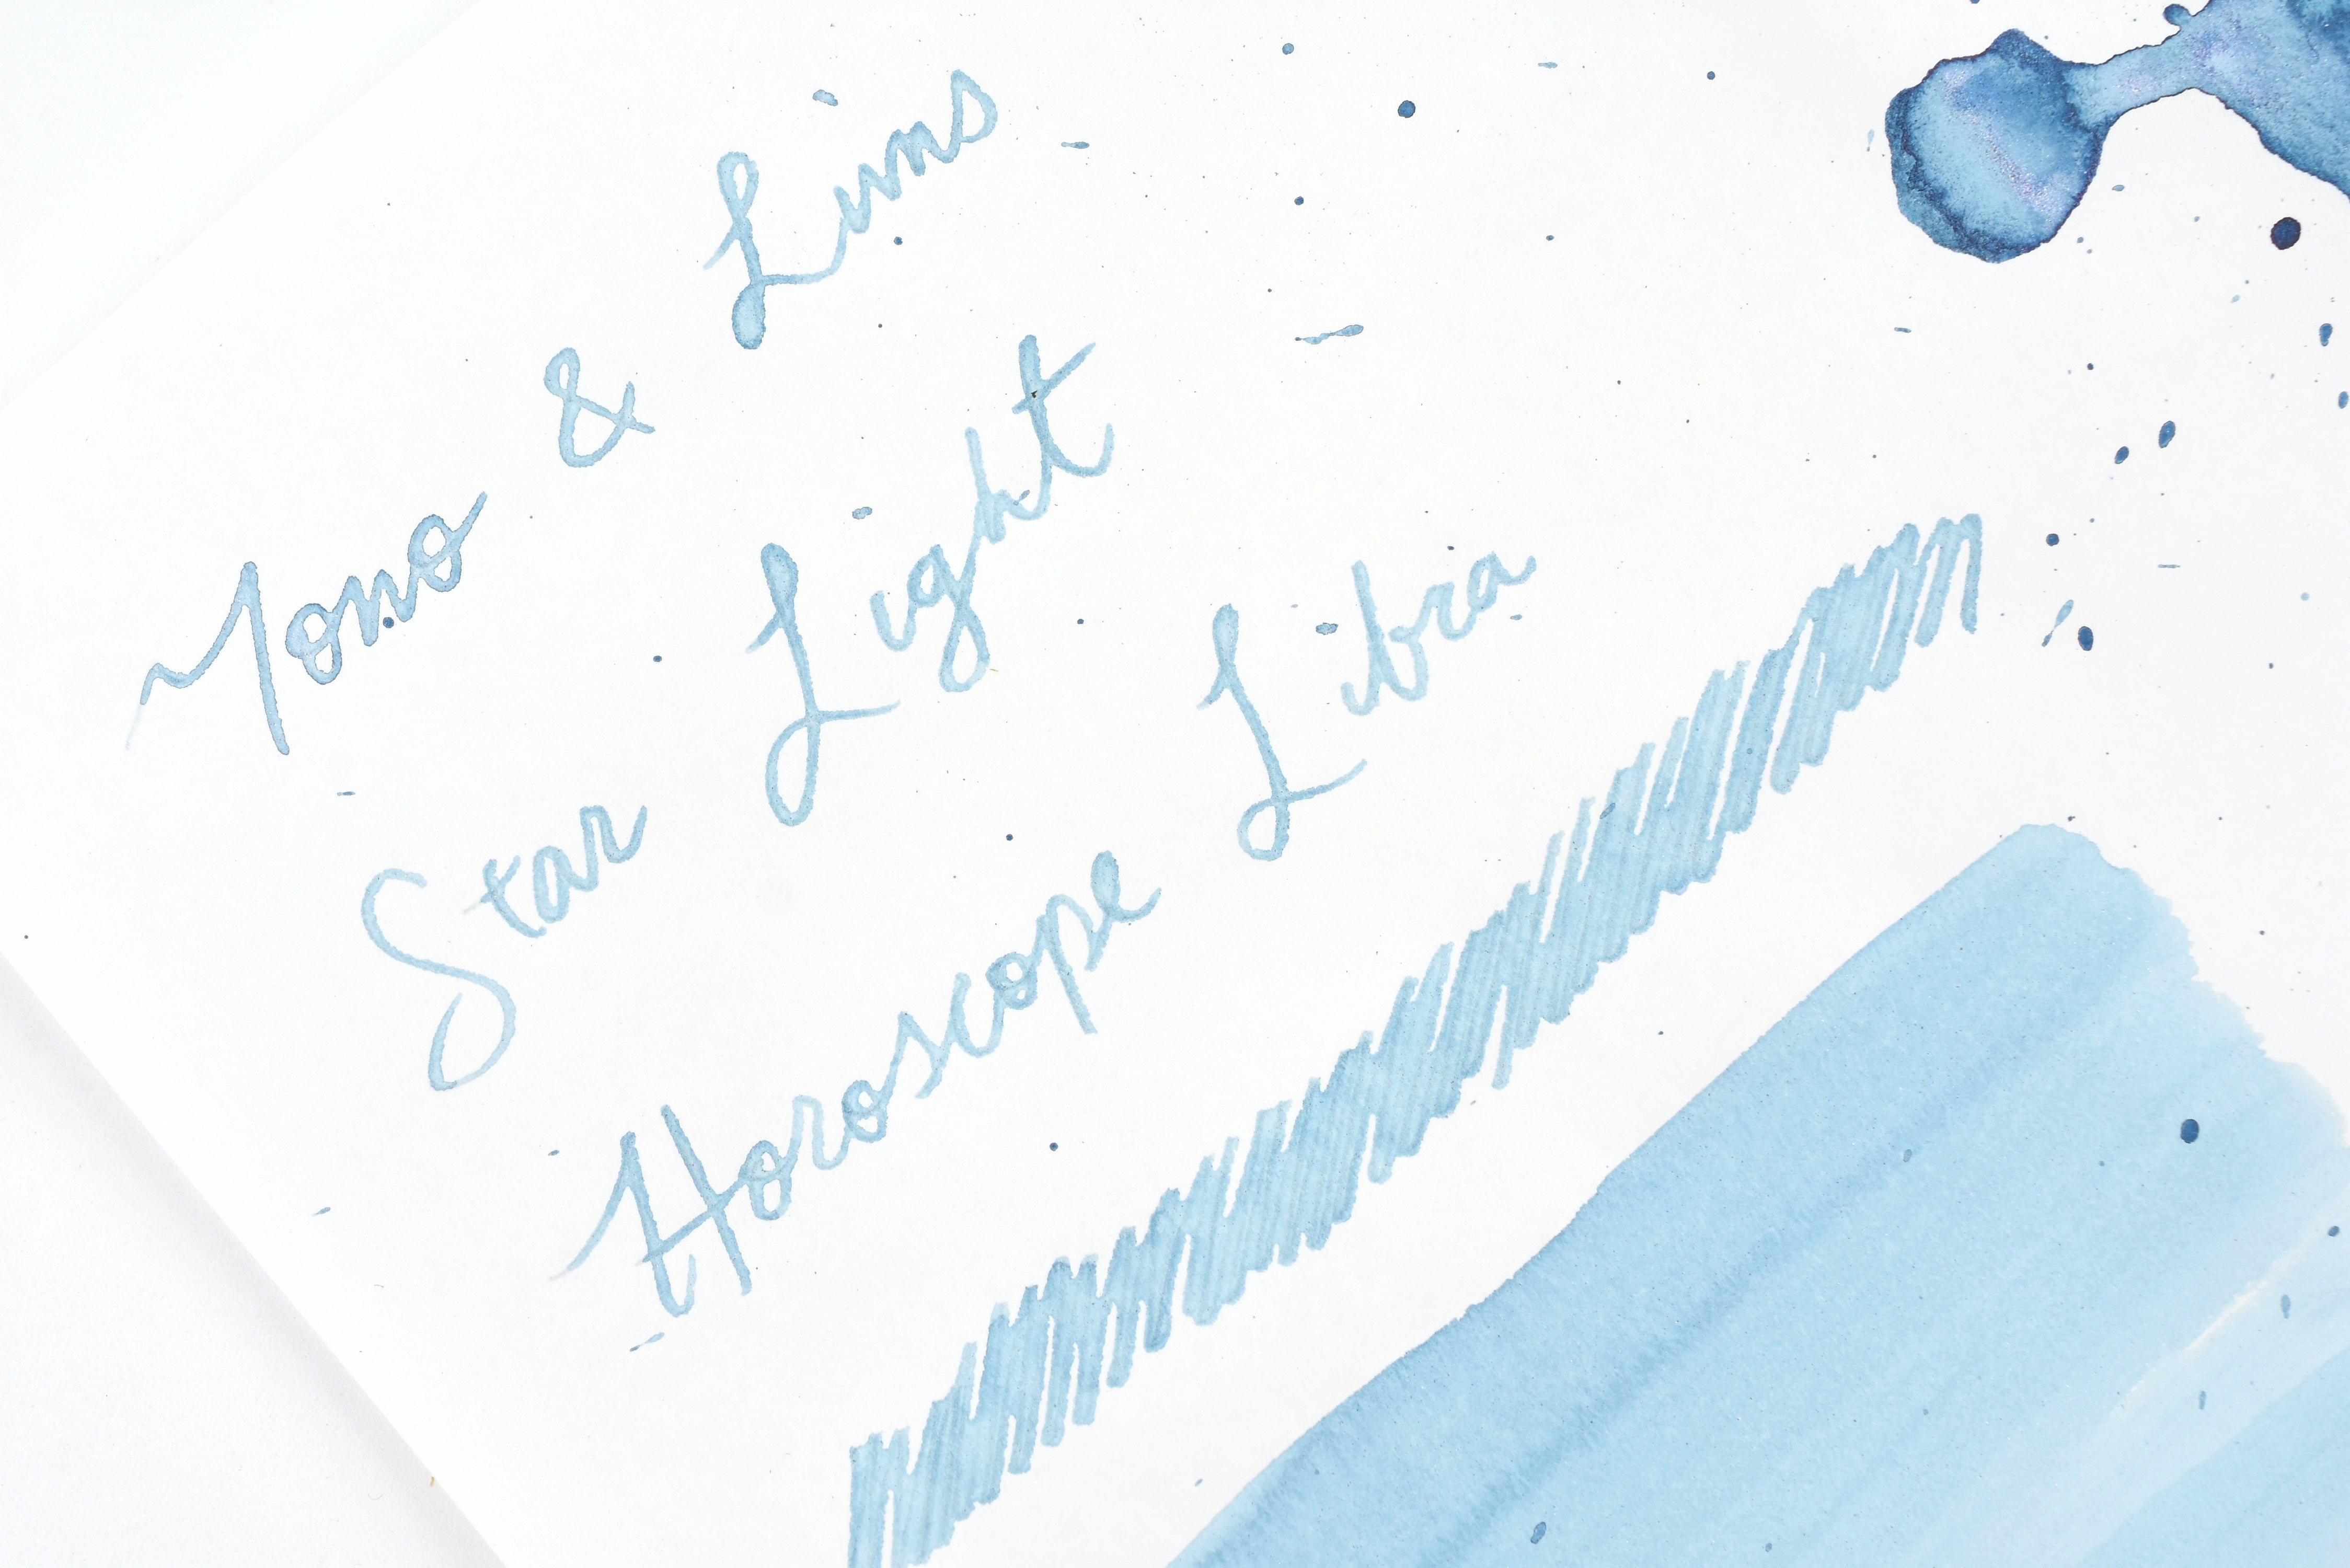 Tono & Lims
Star Light
Horoscope Libra